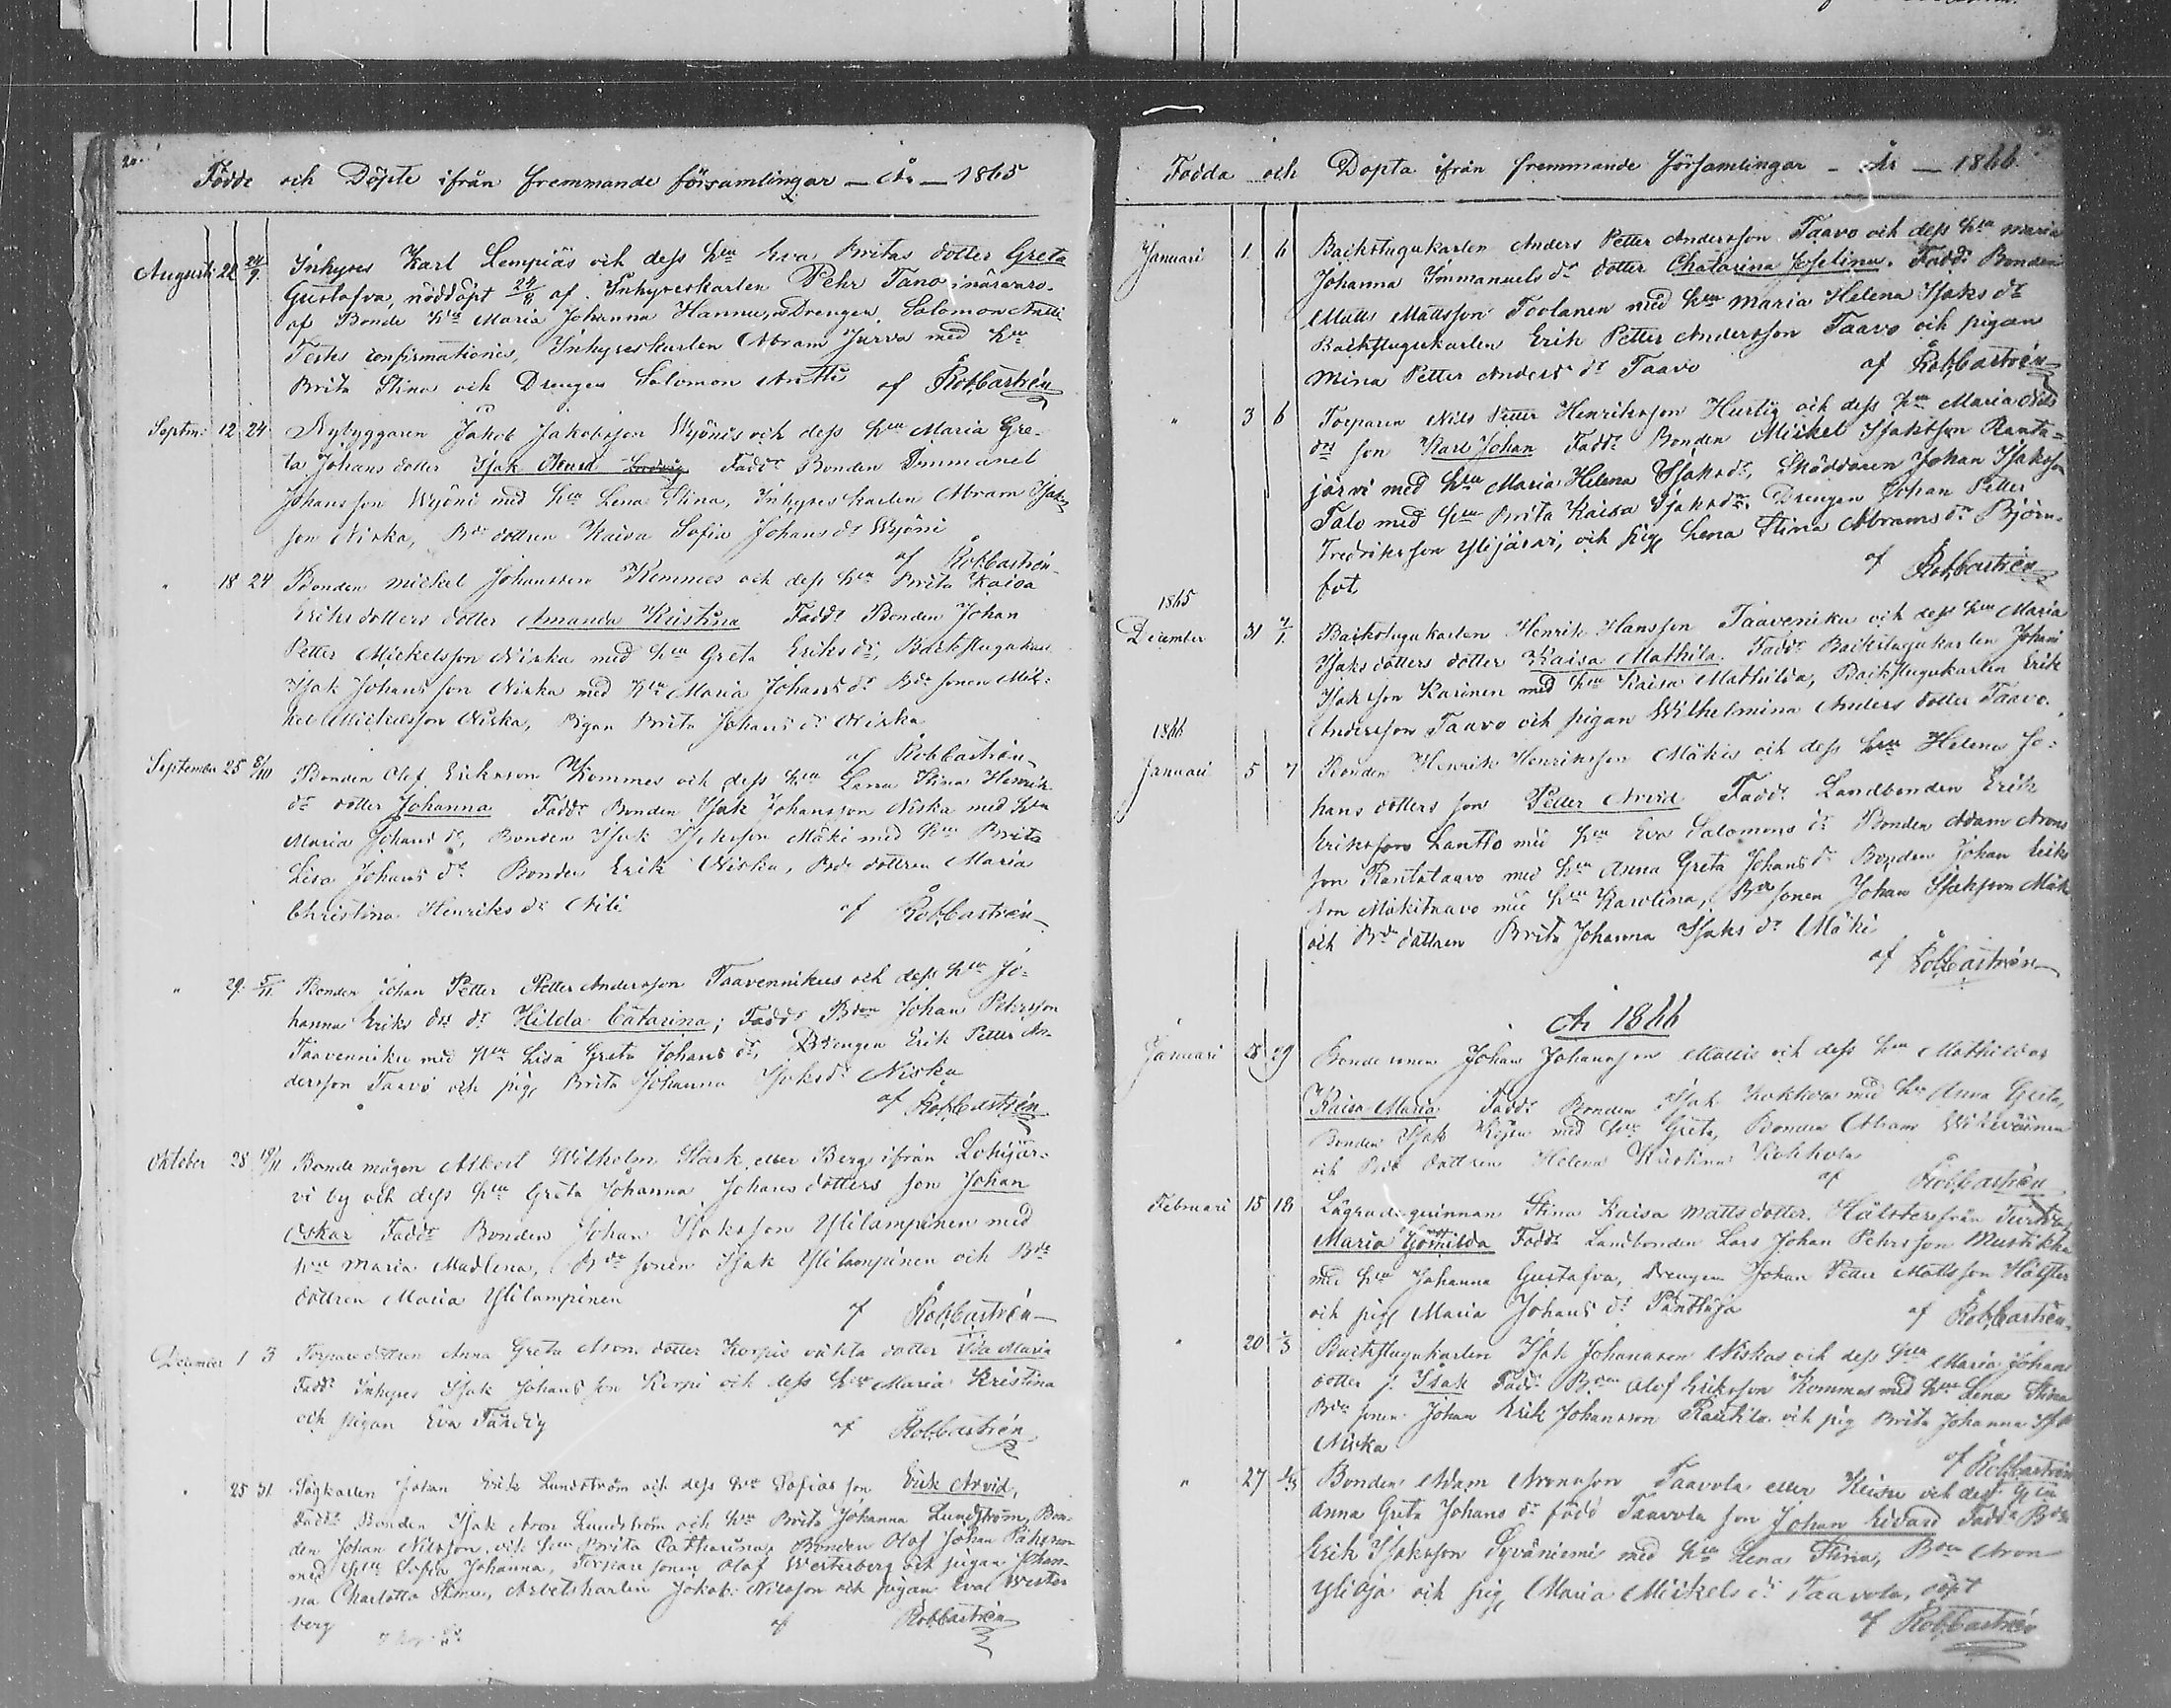 20.
Födde och Döpte ifrån fremmande församlingar — År — 1865
Augusti 22 24/9. Inhyses Karl Lempiäs och dess hu Eva Britas dotter Greta
Gustafva, nöddöpt 24/8 af Inhyseskarlen Pehr Tano i närvaro
af Bonde hu Maria Johanna Hannu, Drengen Salomon Antti
Testes confirmationis, Inhyseskarlen Abram Jurva med hu
Brita Stina och Drengen Salomon Antti af RobCastrén
Septm: 12 24 Nybyggaren Jakob Jakobsson Wyönis och dess hu Maria Gre-
ta Johans dotter Isak Ludvig Fadd: Bonden Immanel
Johansson Wyöni med hu Lena Stina, Inhyses karlen Abram Isak
son Niska, Bde dottren Kaisa Sofia Johans dr Wyöni
af RobCastrén
" 18 24 Bonden Mickel Johansson Kemmes och dess hu Brita Kaisa
Eriksdotters dotter Amanda Kristina Fadd: Bonden Johan
Petter Mickelsson Niska med hu Greta Eriks dr, Backstugukarl
Isak Johansson Niska med hu Maria Johans dr Bde sonen Mic-
kel Mickelsson Niska, Pigan Brita Johans dr Niska
af RobCastrén
September 25 8/10 Bonden Olof Eriksson Kommes och dess hu Lena Stina Henrik
dr dotter Johanna Fadd: Bonden Isak Johansson Niska med hu
Maria Johans dr, Bonden Isak Isaksson Mäki med hu Brita
Lisa Johans dr Bonden Erik Niska, Bde dottren Maria
Christina Henriks dr Nili af RobCastrén
" 29. 5/11 Bonden Johan Petter Petter Andersson Taavennikus och dess hu Jo-
hanna Eriks drs dr Hilda Catarina; Fadd: Bden Johan Petersson
Taavenniku med hu Lisa Greta Johans dr, Drengen Erik Petter An-
dersson Taavo och pig. Brita Johanna Isaks dr Niska
af RobCastrén
Oktober 28 19/11 Bonde mågen Albert Wilhelm Stark eller Berg ifrån Lohijär-
vi by och dess hu Greta Johanna Johans dotters son Johan
Oskar Fadd: Bonden Johan Isaksson Ylilampinen med
hu Maria Madlena, Bde sonen Isak Ylilampinen och Bde
dottren Maria Ylilampinen af RobCastrén
December 1 3 Torparedottren Anna Greta Arons dotter Korpis oäkta dotter Ida Maria
Fadd: Inhyses Isak Johans son Korpi och dess hu Maria Kristina
och pigan Eva Färdig af RobCastrén
" 25 31 Sågkarlen Johan Erik Lundström och dess hu Sofias son Erik Arvid,
Fadd: Bonden Isak Aron Lundström och hu Brita Johanna Lundström, Bon-
den Johan Nilsson och hu Brita Catharina, Bonden Olof Johan
med hu Sofia Johanna, Torpare sonen Olof Westerberg och pigan Johan-
na Charlotta Stina, Arbetskarlen Jakob Nilsson och pigan Eva Wester
berg af RobCastrén
Födda och Döpta ifrån fremmande församlingar — År — 1866.
Januari 1 6 Backstugukarlen Anders Petter Andersson Taavo och dess hu Maria
Johanna Immanuels dr dotter Chatarina Josefina. Fadd: Bonden
Matts Mattsson Toolanen med hu Maria Helena Isaks dr
Backstugukarlen Erik Petter Andersson Taavo och pigan
Mina Petter Anders dr Taavo af RobCastrén
" 3 6 Torparen Nils Petter Henriksson Hurtig och dess hu Maria Nils
dr son Karl Johan Fadd: Bonden Mickel Isaksson Ranta-
järvi med hu Maria Helena Isaks dr, Skäddaren Johan Isaksson
Talo med hu Brita Kaisa Isaks dr. Drengen Johan Petter
Fredriksson Ylijärvi, och pig. Lena Stina Abrams dr Björn-
fot af RobCastrén
1865
December 31 7/1 Backstugukarlen Henrik Hansson Taavenniku och dess hu Maria
Isaks dotters dotter Kaisa Mathila. Fadd: Backstugukarlen Johan
Isaksson Karinen med hu Kaisa Mathilda, Backstugukarlen Erik
Andersson Taavo och pigan Wilhelmina Anders dotter Taavo.
1866
Januari 5 7 Bonden Henrik Henriksson Mäkis och dess hu Helena Jo-
hans dotters son Petter Arvid Fadd: Landbonden Erik
Eriksson Lantto med hu Eva Salomons dr Bonden Adam Arons
son Rantataavo med hu Anna Greta Johans dr Bonden Johan Eriks
son Mäkitaavo med hu Karolina, Bde sonen Johan Isaksson Mäki
och Bde dottren Brita Johanna Isaks dr Mäki
af RobCastrén
År 1866
Januari 28 29 Bondesonen Johan Johansson Mallis och dess hu Mathildas
Kaisa Maria Fadd: Bonden Isak Kokkola med hu Anna Greta,
Bonden Isak med hu Greta, Bonden Abram
och Bde dottren Helena Kristina Kokkola
af RobCastrén
Februari 15 18 Lägradeqvinnan Stina Kaisa Matts dotter. Hälster från
Maria Gothilda Fadd: Landbonden Lars Johan Pehrsson Mustikka
med hu Johanna Gustafva, drengen Johan Petter Mattsson Hälster
och pig. Maria Johans dr af RobCastrén
" 20 Backstugukarlen Isak Johansson Niskas och dess hu Maria Johans
dotter s. Isak Fadd: Bden Olof Eriksson Kommes med hu Lena Stina
Bde sonen Johan Erik Johansson Rautila och pig Brita Johanna Isak
Niska
af RobCastrén
" 27 Bonden Adam Aronsson Taavola eller Keisu och dess hu
Anna Greta Johans dr född Taavola son Johan Edvard Fadd: Bden
Erik Isaksson Syväniemi med hu Lena Stina, Bden Aron
Yliojа och pig. Maria Mickels dr Taavola, döpt
af RobCastrén